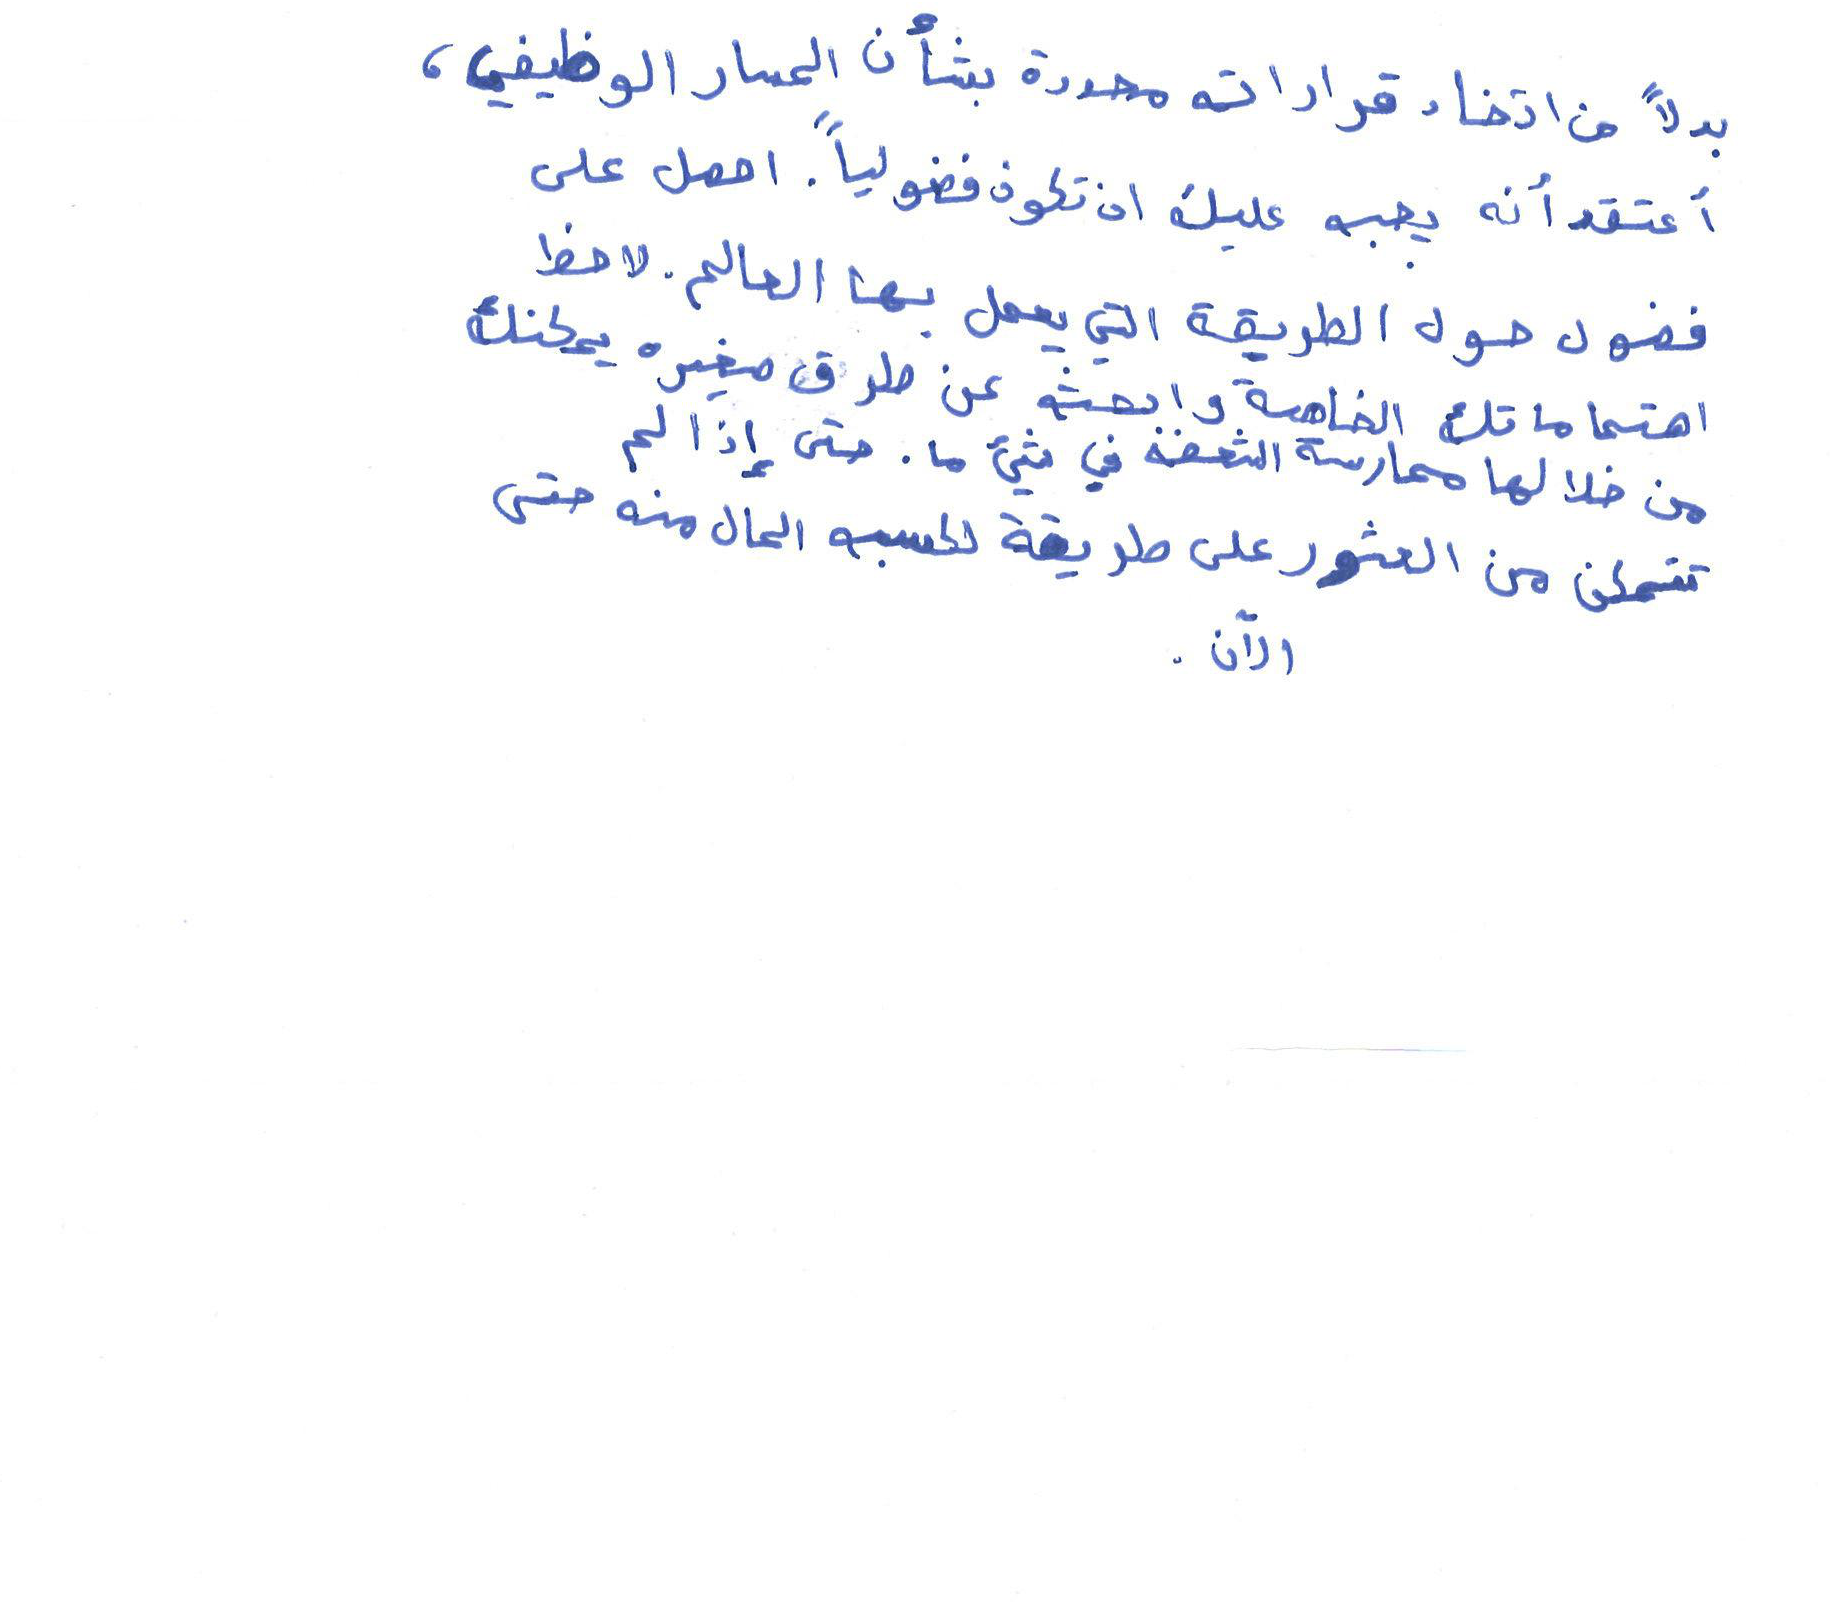 بدلاً من اتخاذ قرارات محددة بشأن المسار الوظيفي،
أعتقد أنه يجب عليك ان تكون فضولياً. احصل على
فضول حول الطريقة التي يعمل بها العالم. لاحظ
اهتماماتك الخاصة وابحث عن طرق صغيره يمكنك
من خلالها ممارسة الشغف في شئ ما. حتى إذا لم
تتمكن من العثور على طريقة لكسب المال منه حتى
الآن.